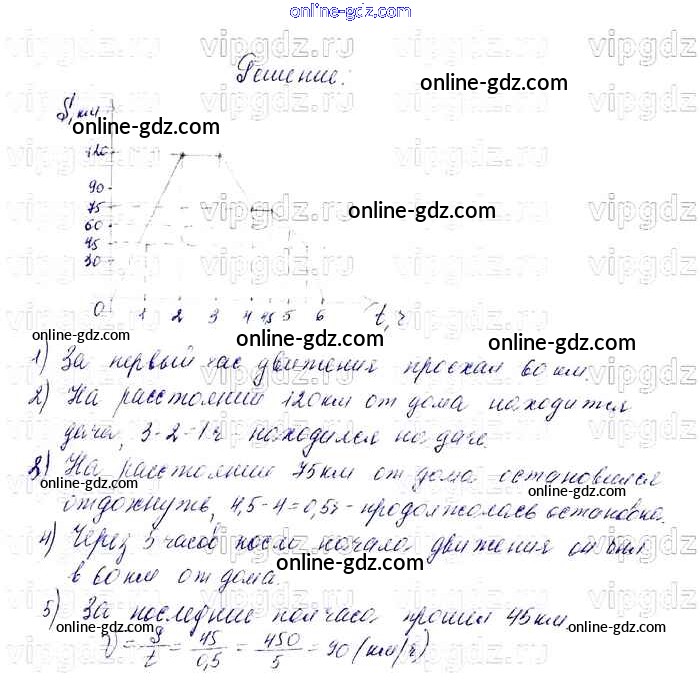 online-gdz.com
vipgdz.ru vipgdz.ru vipgdz
Решение:
online-gdz.com
S, км
online-gdz.com
120
90
75
60
45
30
0 1 2 3 4 4,5 5 6 t, ч
online-gdz.com
online-gdz.com online-gdz.com online-gdz.com
1) За первый час движения проехал 60 км.
2) На расстоянии 120 км от дома находится
дача, 3-2=1ч - находился на даче
online-gdz.com online-gdz.com
3) На расстоянии 75 км от дома остановился
отдохнуть, 4,5-4=0,5ч - продолжалась остановка.
online-gdz.com online-gdz.com
4) Через 5 часов после начала движения он был
в 60 км от дома.
online-gdz.com
5) За последние полчаса прошел 45 км.
online-gdz.com online-gdz.com
V = S/t = 45/0,5 = 450/5 = 90 (км/ч)
online-gdz.com